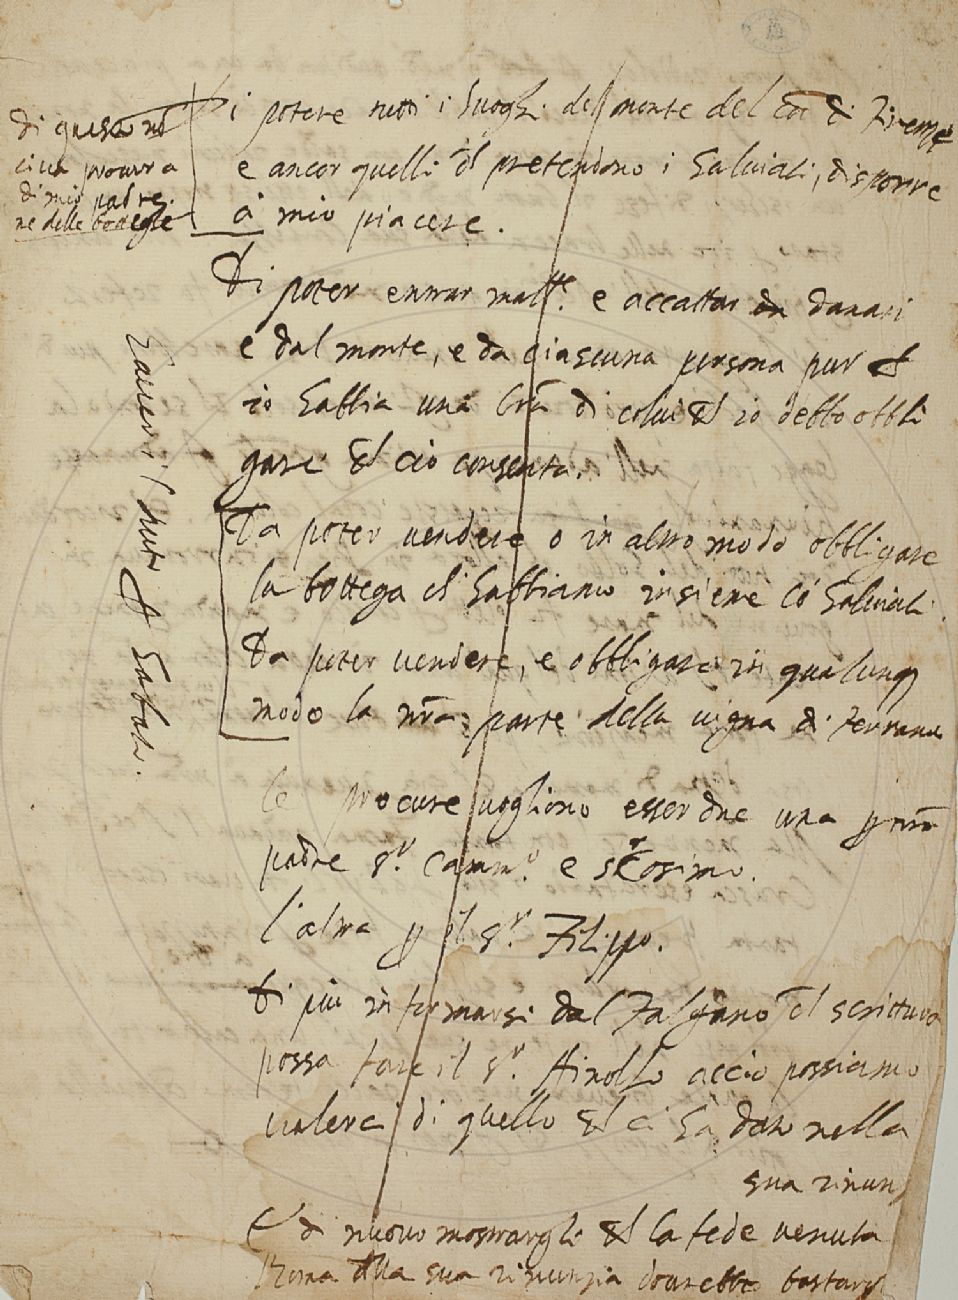 di questo no
ci va procura
di mio padre
ne delle botteghe
i potere tutti i luoghi del monte del Co di Firenze
e ancor quelli ch pretendono i Salviati, disporre
a mio piacere.
Di poter entrar mallre. e accattar da danari
e dal monte, e da ciascuna persona pur ch
io habbia una lra di colui ch io debbo obbli
gare ch ciò consenta.
Da poter vendere o in altro modo obbligare
la bottega ch habbiamo insieme co Salviati.
Da poter vendere, e obbligare in qualunq
modo la nra parte della vigna di Terrana
le procure vogliono esser due una p mio
padre Sr. Camm. e Sr Cosimo.
l'altra p il Sr. Filippo.
Di più informarsi dal Falgano ch scrittura
possa fare il Sr. Arnolfo acciò possiamo
valerci di quello ch ci ha dato nella
sua rinun
E di nuovo mostrargli ch la fede venuta
Roma alla sua rinunzia dovrebbe bastar